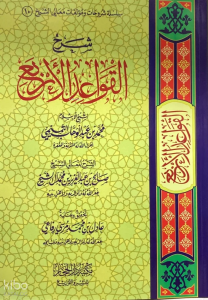 سلسلة شروحات ومؤلفات معالي الشيخ (١٠)
شرح
القواعد الأربع
لشيخ الإسلام
محمد بن عبد الوهاب التميمي
الشرح لمعالي الشيخ
صالح بن عبد العزيز بن محمد آل الشيخ
تحقيق وعناية
عادل بن محمد مرسي رفاعي
القواعد الأربع
milyon